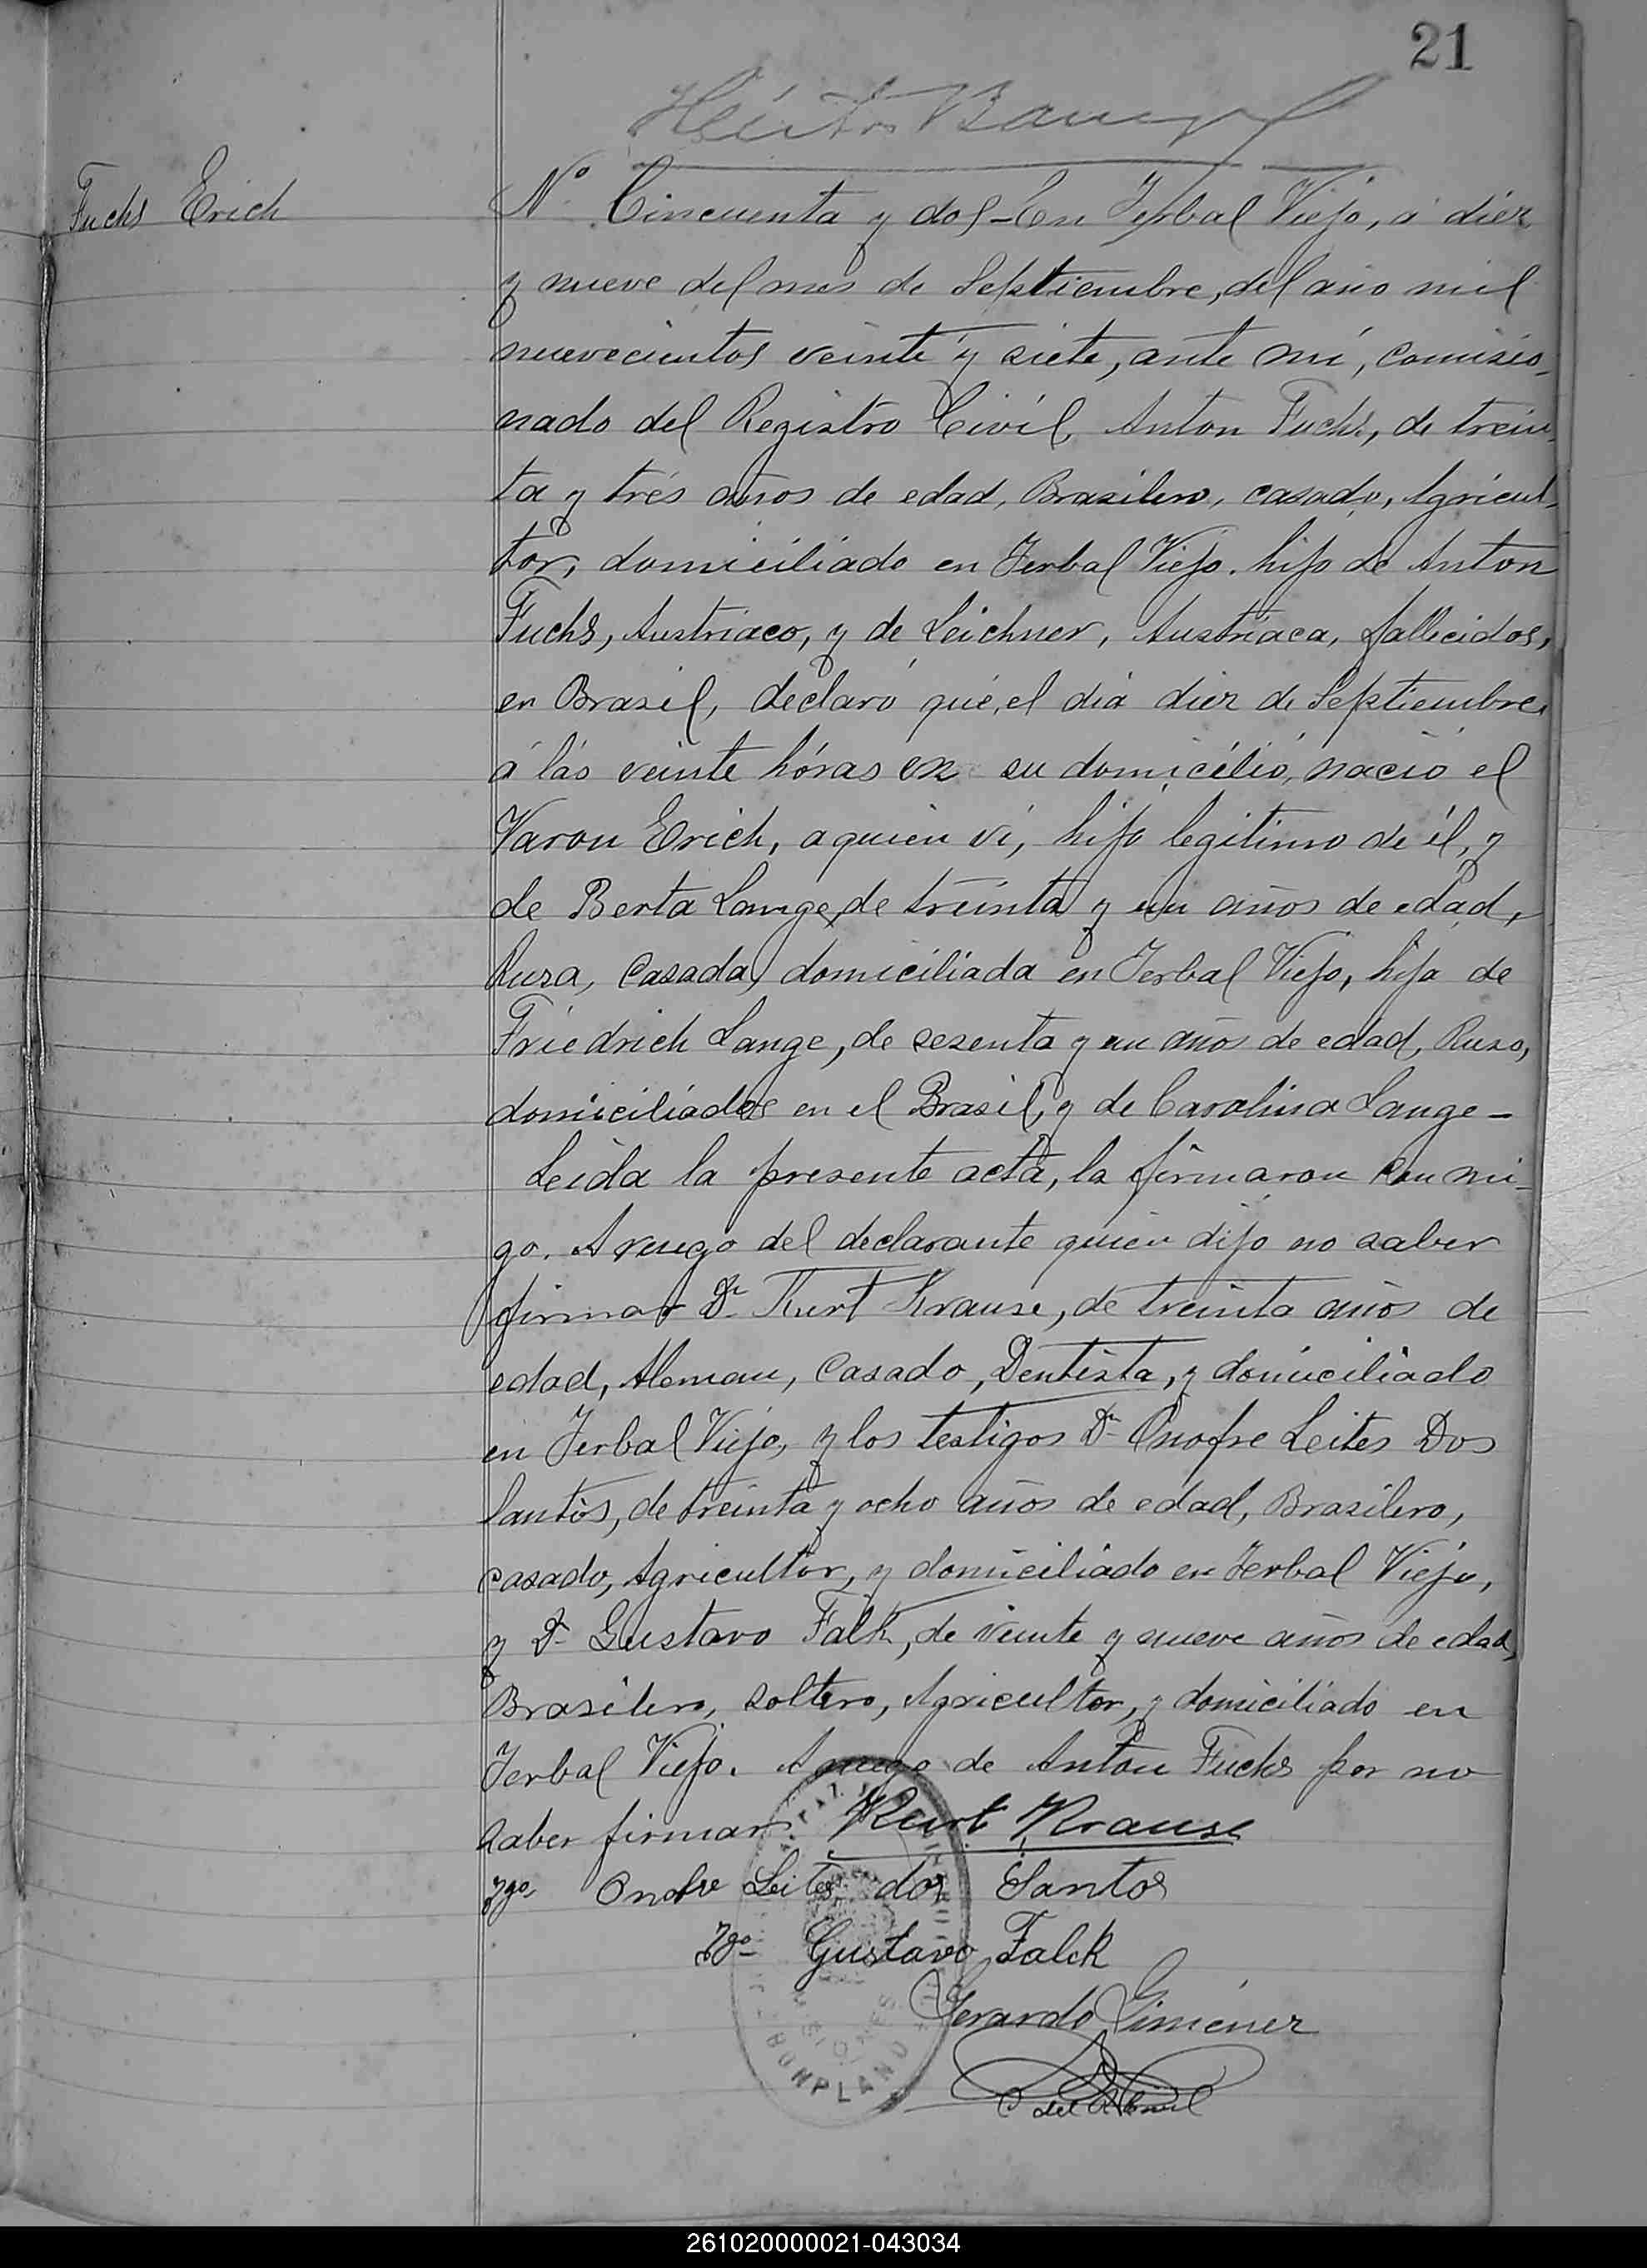 21
Fuchs Erich
Nº Cincuenta y dos - En Yerbal Viejo, á diez
y nueve del mes de Septiembre, del año mil
nuevecientos veinte y siete, ante mí, comisio-
nado del Registro Civil, Anton Fuchs, de trein-
ta y trés años de edad, Brasilero, casado, Agricul-
tor, domiciliado en Yerbal Viejo. hijo de Anton
Fuchs, Austriaco, y de Leichner, Austriaca, fallecidos,
en Brasil, declaró qué, el día diez de Septiembre,
á lás veinte hóras en su domicilio, nació el
Varon Erich, a quien ví, hijo legitimo de él, y
de Berta Lange, de treinta y un años de edad,
Rusa, Casada, domiciliada en Yerbal Viejo, hija de
Friedrich Lange, de sesenta y un años de edad, Ruso,
domiciliados en el Brasil, y de Carolina Lange -
Leida la presente acta, la firmaron con mi-
go. A ruego del declarante quien dijo no saber
firmar Dn Kurt Krause, de treinta años de
edad, Aleman, Casado, Dentista, y domiciliado
en Yerbal Viejo, y los testigos Dn Onofre Leites Dos
Santos, de treinta y ocho años de edad, Brasilero,
casado, Agricultor, y domiciliado en Yerbal Viejo,
y Dn Gustavo Falk, de veinte y nueve años de edad,
Brasilero, soltero, Agricultor, y domiciliado en
Yerbal Viejo. A ruego de Anton Fuchs por no
saber firmar Kurt Krause
Tgo Onofre Leites dos Santos
Tgo Gustavo Falck
Gerardo Gimenez
MISIONES
BONPLAND
261020000021-043034